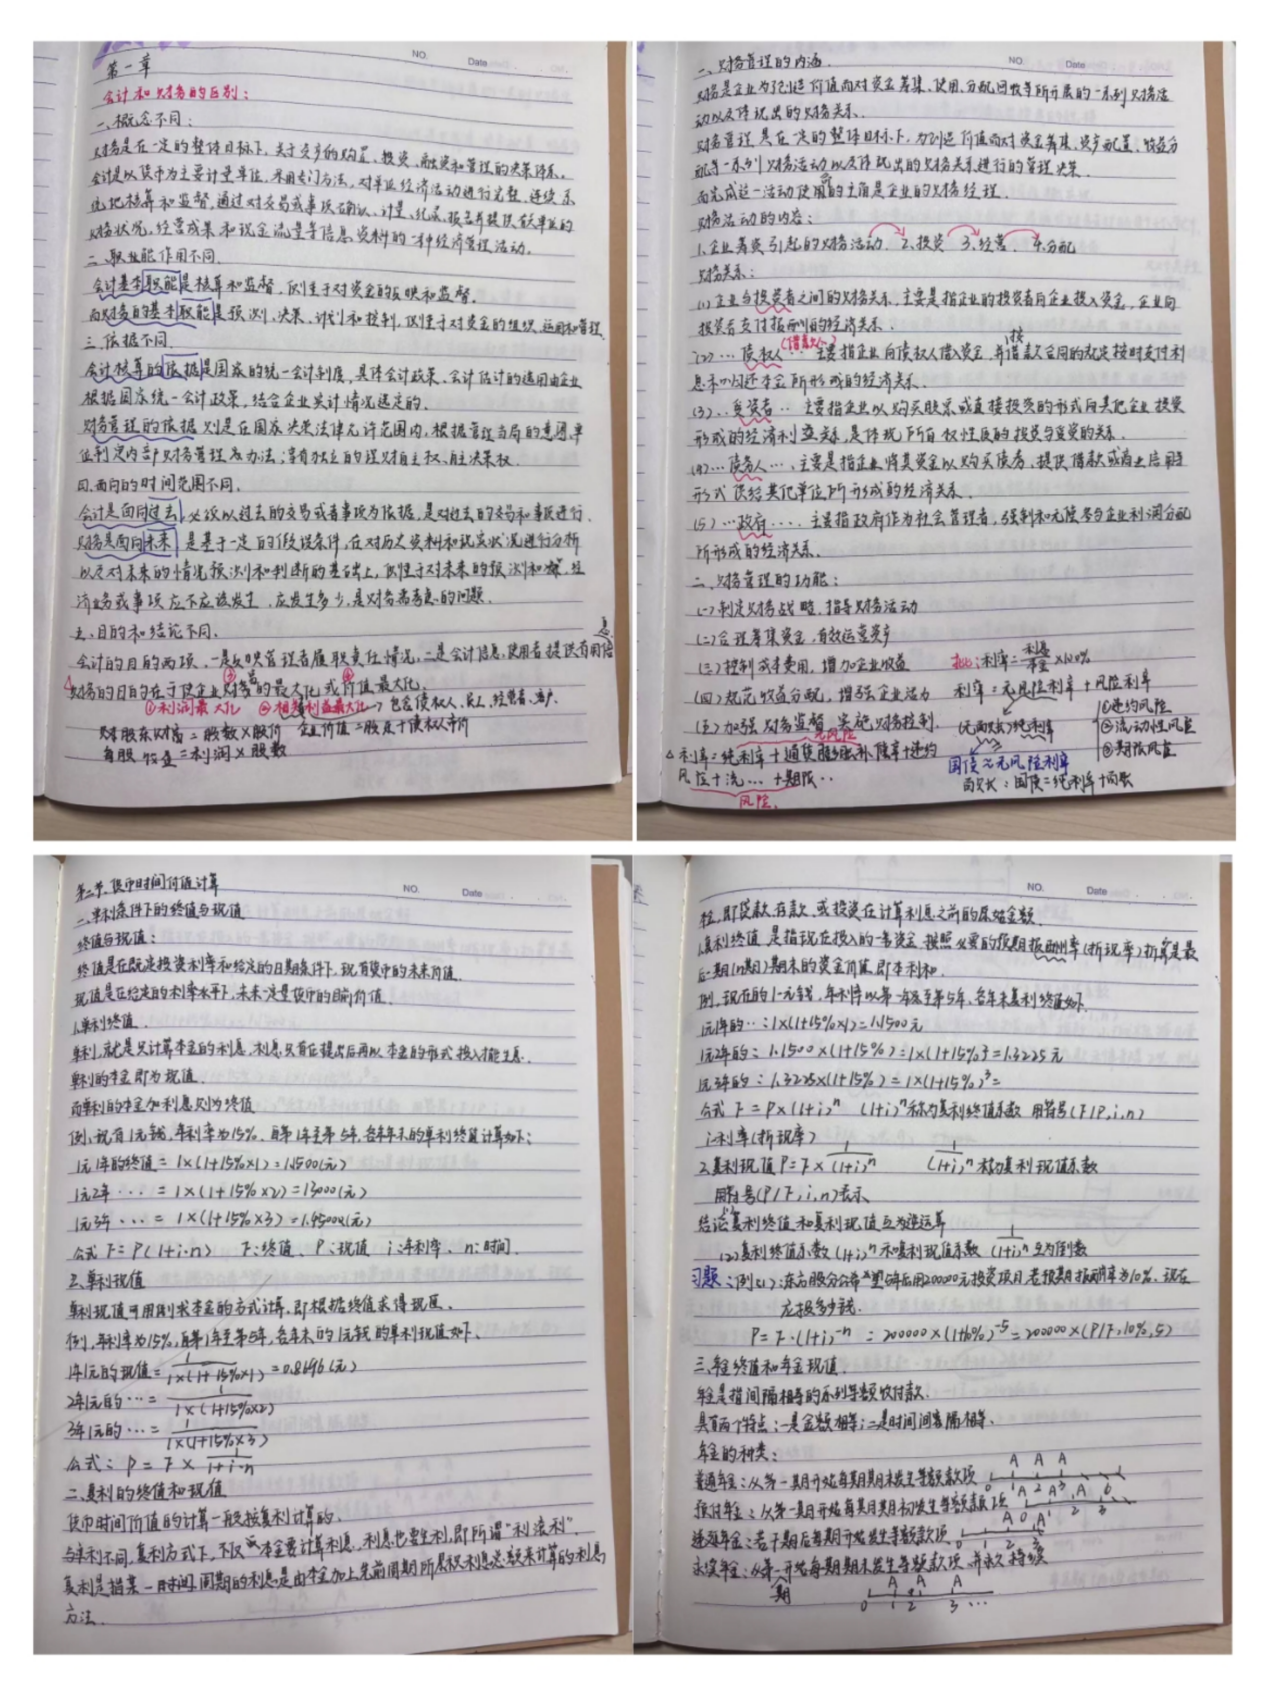 NO. Date
第一章
会计和财务的区别：
一、概念不同：
财务是在一定的整体目标下，关于资产的购置、投资、融资和管理的决策体系。
会计是以货币为主要计量单位，采用专门方法，对单位经济活动进行完整、连续、系
统地核算和监督，通过对交易或事项确认、计量、记录、报告并提供有关单位的
财务状况，经营成果和现金流量等信息资料的一种经济管理活动。
二、职业能作用不同。
会计基本职能是核算和监督，侧重于对资金的反映和监督。
而财务的基本职能是预测、决策、计划和控制，侧重于对资金的组织、运用和管理
三、依据不同。
会计核算的依据是国家的统一会计制度，具体会计政策、会计估计的选用由企业
根据国家统一会计政策，结合企业实计情况选定的。
财务管理的依据则是在国家决策法律允许范围内，根据管理当局的意图，单
位制定内部财务管理办法；享有独立的理财自主权、自主决策权.
四、面向的时间范围不同。
会计是面向过去，必须以过去的交易或者事项为依据，是对过去的交易和事项进行.
财务是面向未来，是基于一定的假设条件，在对历史资料和现实状况进行分析
以及对未来的情况预测和判断的基础上，侧重于对未来的预测和决策，经
济业务或事项应不应该发生，应发生多少，是财务需考虑的问题.
五、目的和结论不同。
会计的目的两项，一是反映管理者履职责任情况，二是会计信息，使用者提供有用信息
财务的目的在于使企业财富的最大化或价值最大化.
①利润最大化 ④相关利益最大化→包含债权人、员工、经营者、客户.
股东财富=股数×股价 企业价值=股东+债权人市价
每股收益=利润×股数
NO. Date
一、财务管理的内涵.
财务是企业为了创造价值而对资金筹集、使用、分配回收等所开展的一系列财务活
动以及体现出的财务关系.
财务管理是在一定的整体目标下，为创造价值而对资金筹集、资产配置、收益分
配等一系列财务活动以及体现出的财务关系进行的管理决策.
而完成这一活动使命的主角是企业的财务经理.
财务活动的内容：
1.企业筹资引起的财务活动 2.投资 3.经营 4.分配
财务关系：
(1)企业与投资者之间的财务关系，主要是指企业的投资者向企业投入资金，企业向
投资者支付报酬的经济关系.
(2)…债权人(借款人)… 主要指企业向债权人借入资金，并按借款合同的规定按时支付利
息和归还本金所形成的经济关系.
(3)…受资者… 主要指企业以购买股票或直接投资的形式向其他企业投资
形成的经济利益关系，是体现了所有权性质的投资与受资的关系.
(4)…债务人…，主要是指企业将其资金以购买债券，提供借款或商业信用等
形式供给其他单位所形成的经济关系.
(5)…政府…. 主要指政府作为社会管理者，强制和无偿参与企业利润分配
所形成的经济关系.
二、财务管理的功能：
(一)制定财务战略，指导财务活动
(二)合理筹集资金，有效运营资产
(三)控制成本费用，增加企业收益 :利率=利息/本金×100%
(四)规范收益分配，增强企业活力 利率=无风险利率+风险利率
(五)加强财务监督，实施财务控制. 纯利率 ①违约风险 ②流动性风险 ③期限风险
无风险
△利率=纯利率+通货膨胀补偿率+违约 国债≈无风险利率
风险+流…+期限.. 国债=纯利率+
风险.
NO. Date
第二节、货币时间价值计算
一、单利条件下的终值与现值
终值与现值：
终值是在既定投资利率和给定的日期条件下，现有货币的未来价值.
现值是在给定的利率水平下，未来一定量货币的目前价值.
1.单利终值.
单利，就是只计算本金的利息，利息只有在提出后再以本金的形式投入才能生息.
单利的本金即为现值.
而单利的本金加利息则为终值
例，现有1元钱，年利率为15%，自第1年至第5年，各年年末的单利终值计算如下：
1元1年的终值=1×(1+15%×1)=1.1500(元)
1元2年…=1×(1+15%×2)=1.3000(元)
1元3年…=1×(1+15%×3)=1.4500(元)
公式 F=P(1+i·n) F:终值、P:现值 i:年利率、n:时间.
2.单利现值
单利现值可用倒求本金的方式计算，即根据终值求得现值.
例，年利率为15%，自第1年至第5年，各年末的1元钱的单利现值如下、
1年1元的现值=1/1×(1+15%×1)=0.8696(元)
2年1元的…=1/1×(1+15%×2)
3年1元的…=1/1×(1+15%×3)
公式：P=F×1/1+i·n
二、复利的终值和现值
货币时间价值的计算一般按复利计算的.
与单利不同，复利方式下，不仅本金要计算利息，利息也要生利，即所谓“利滚利”.
复利是指某一时间周期的利息是由本金加上先前周期所累积利息总额来计算的利息
方法.
NO. Date
本金，即贷款、存款、或投资在计算利息之前的原始金额.
1.复利终值 是指现在投入的一笔资金 按照必要的预期报酬率(折现率)折算是最
后一期(n期)期末的资金价值，即本利和.
例，现在的1元钱，年利率15% 第一年至第5年，各年末复利终值如下
1元1年的…:1×(1+15%×1)=1.1500元
1元2年的：1.1500×(1+15%)=1×(1+15%)²=1.3225元
1元3年的：1.3225×(1+15%)=1×(1+15%)³=
公式 F=P×(1+i)ⁿ (1+i)ⁿ称为复利终值系数 用符号(F/P,i,n)
i:利率(折现率)
2.复利现值 P=F×1/(1+i)ⁿ 1/(1+i)ⁿ称为复利现值系数
用符号(P/F,i,n)表示
结论:(1)复利终值和复利现值互为逆运算
(2)复利终值系数(1+i)ⁿ和复利现值系数1/(1+i)ⁿ互为倒数
习题：例(1)：东方股份公司希望5年后用200000元投资项目，若预期报酬率为10%，现在
应投多少钱.
P=F·(1+i)⁻ⁿ=200000×(1+10%)⁻⁵=200000×(P/F,10%,5)
三、年金终值和年金现值.
年金是指间隔相等的系列等额收付款.
具有两个特点：一是金额相等；二是时间间隔相等.
年金的种类：
普通年金：从第一期开始每期期末发生等额款项
预付年金：从第一期开始每期期初发生等额款项
递延年金：若干期后每期开始发生等额款项
永续年金：从第一期开始每期期末发生等额款项并永久持续
A A A
0 1 2 3 …